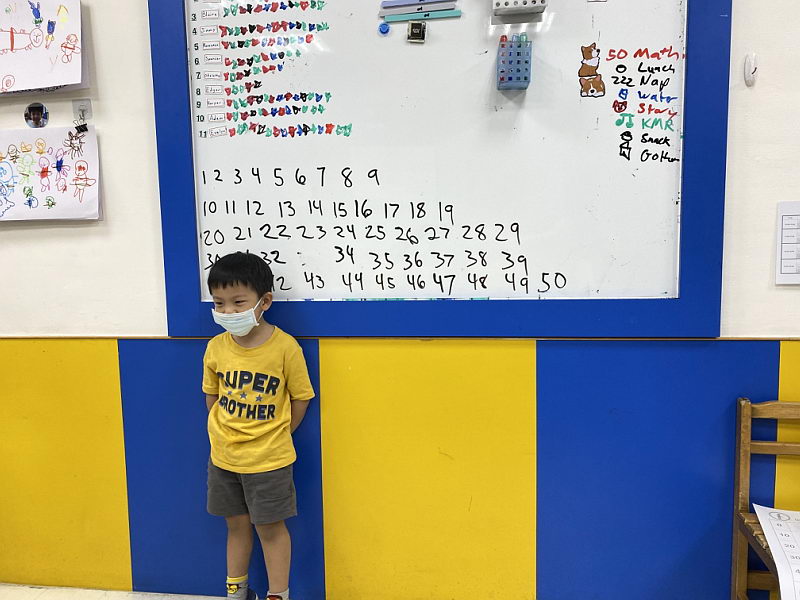 3 Blaire
4
5
6 Spencer
7
8 Edgar
9 Harper
10 Adam
11 Evelyn
50 Math
Lunch
Nap
Story
KMR
Snack
1 2 3 4 5 6 7 8 9
10 11 12 13 14 15 16 17 18 19
20 21 22 23 24 25 26 27 28 29
32 34 35 36 37 38 39
43 44 45 46 47 48 49 50
SUPER
BROTHER